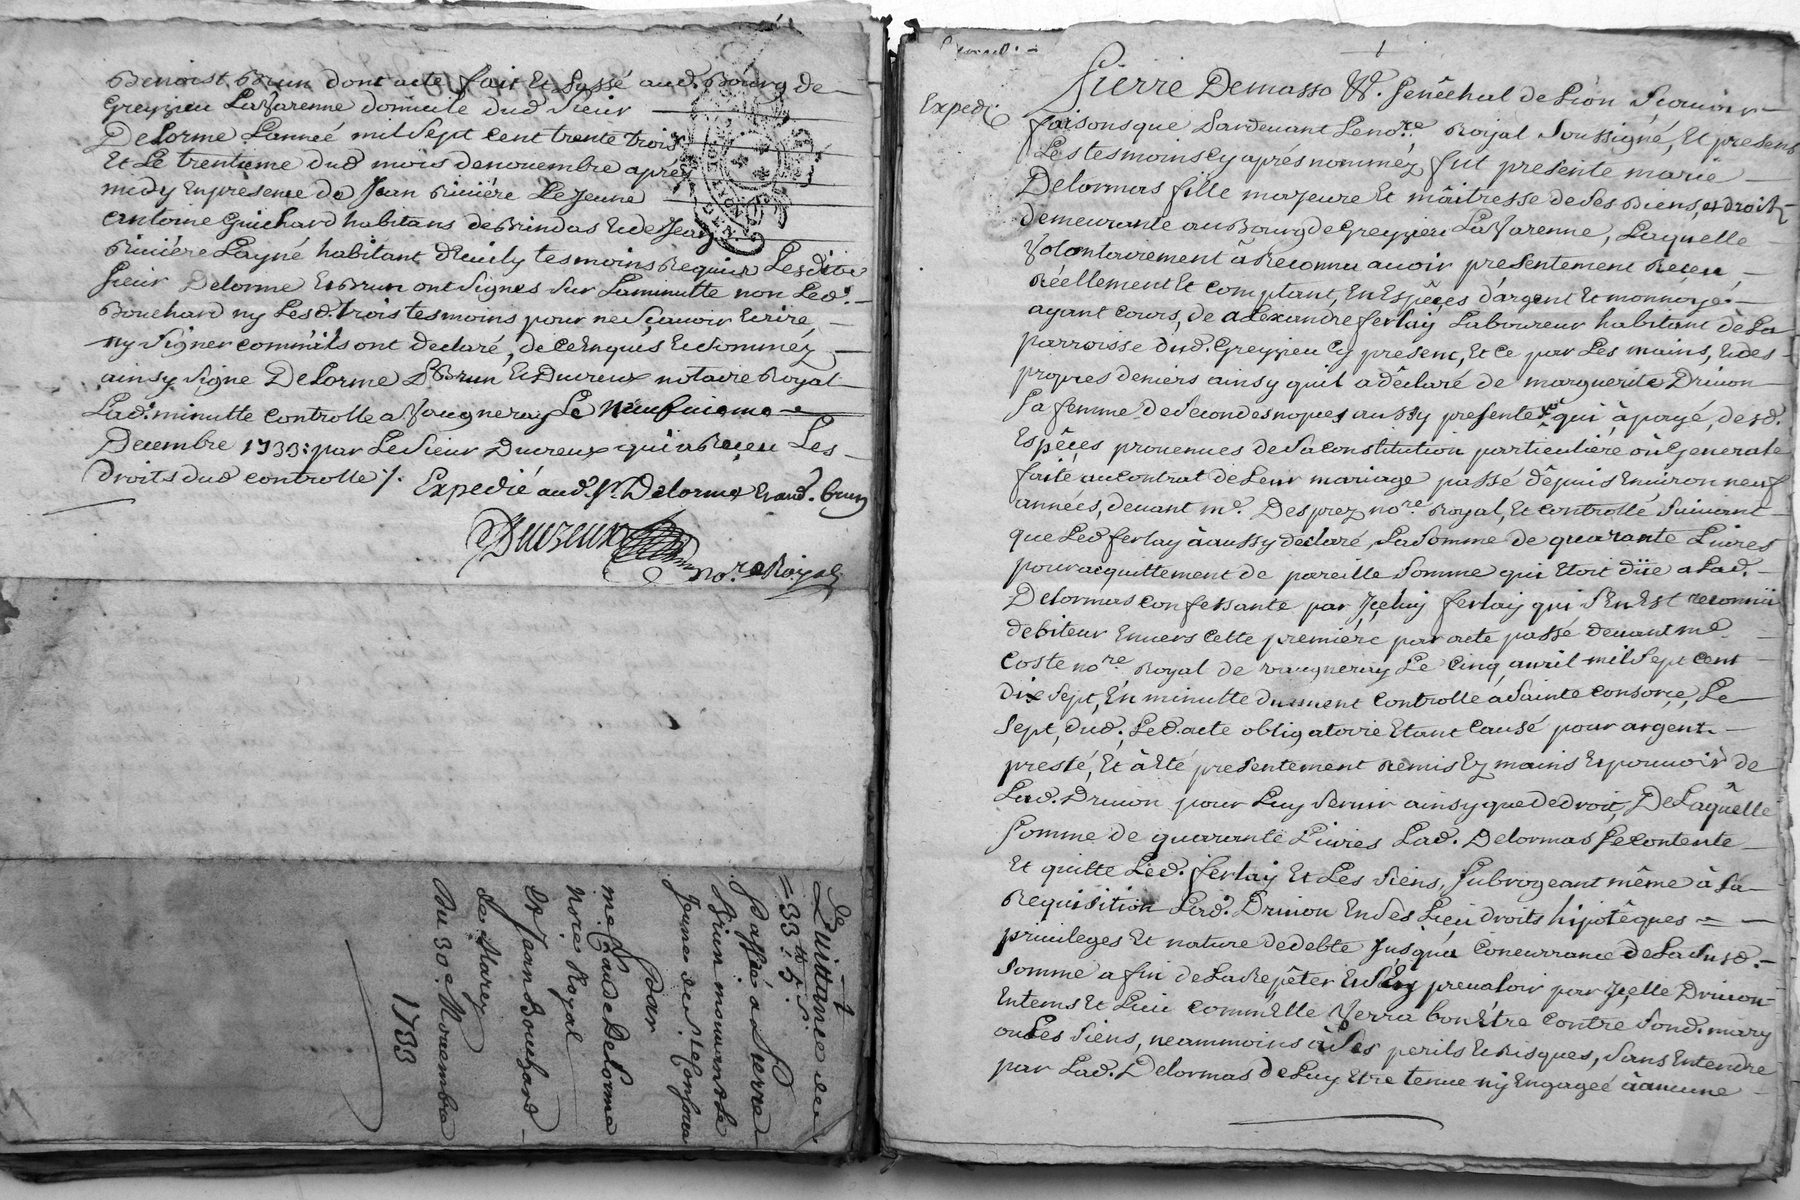 Benoist Brun dont acte fait Et passé aud. Bourg de
Greyzieu LaVarenne domicile dud Sieur
Delorme Lanneé mil Sept cent trente trois
Et Le trentieme dud mois denouembre aprés
midy En presence de Jean Riuiére Le Jeune
Antoine Guichard habitans de Brindas Et de Jean
Riuiére Layné habitant d'Euily tesmoins Requis Lesdits
Sieur Delorme Et Brun ont Signés Sur Laminutte non Led.
Bouchard ny Lesd. trois tesmoins pour ne Sçauoir Ecrire,
ny Signer comm'ils ont declaré, de ce Enquis Et Sommez
ainsy Signe Delorme Brun Et Ducreux notaire Royal
Lad. minutte Controlle a Vaugneray Le Neufuieme
Decembre 1733: par Le Sieur Ducreux qui a Reçeu Les
Droits dud controlle /. Expedié aud. Sr. Delorme Et aud. brun
Ducreux
No.re Royal
Quittance de
33
Passée a Pierre
Brun
Jeune de Ste Consorce
Par
me Claude Delorme
Noire Royal
Et Jean Bouchard
de Marcy
Du 30e Novembre
1733
Expedie
Pierre Demasso Sénéchal de Lion Sçauoir
faisons que Pardeuant Le no.re Royal Soussigné, Et presens
Les tesmoins cy aprés nommez fut presente marie
Delormas fille majeure Et maîtresse de Ses Biens, et droits
demeurante au Bourg de Greyzieu LaVarenne, Laquelle
Volontairement à Reconnu auoir presentement Reçeu
Réellement Et comptant, En Espêces d'argent Et monnoye
ayant cours, de alexandre ferlay Laboureur habitant de La
parroisse dud. Greyzieu cy present, Et ce par Les mains, Et des
propres deniers ainsy qu'il a déclaré de marguerite Driuon
Sa femme de Secondes nopces aussy presente, qui à payé, desd.
Espêces prouenues de Sa constitution particuliére où Generale
faite au Contrat de Leur mariage passé depuis Enuiron neuf
années, deuant me. Desprez no.re Royal, Et controllé Suiuant
que Led ferlay à aussy declaré, La Somme de quarante Liures
pour acquittement de pareille Somme qui Etoit düe a Lad.
Delormas confessante par Jçeluy ferlay qui S'En Est reconnu
debiteur Enuers Cette premiére par acte passé deuant me.
Coste no.re Royal de vaugneray Le Cinq auril mil Sept cent
dix Sept, En minutte duement Controllé à Sainte Consorçe, Le
Sept, dud. Led. acte obligatoire Etant Causé pour argent
presté, Et à Eté presentement Remis Ez mains Et pouuoir de
Lad. Driuon pour Luy Seruir ainsy que de droit, De Laquelle
Somme de quarante Liures Lad. Delormas Se Contente
Et quitte Led. ferlay Et Les Siens, Subrogeant même à Sa
Requisition Lad. Driuon En Ses Lieu droits hipotêques
priuileges Et nature de debte Jusqu'a Concurrance de La Susd.
Somme a fin de La Repéter Et S'En preualoir par Jçelle Driuon
En tems Et Lieu Comm'Elle Verra bon Etre Contre Sond. mary
ou Les Siens, neammoins à Ses perils Et Risques, Sans Entendre
par Lad. Delormas de Luy Etre tenue ny Engageé à aucune